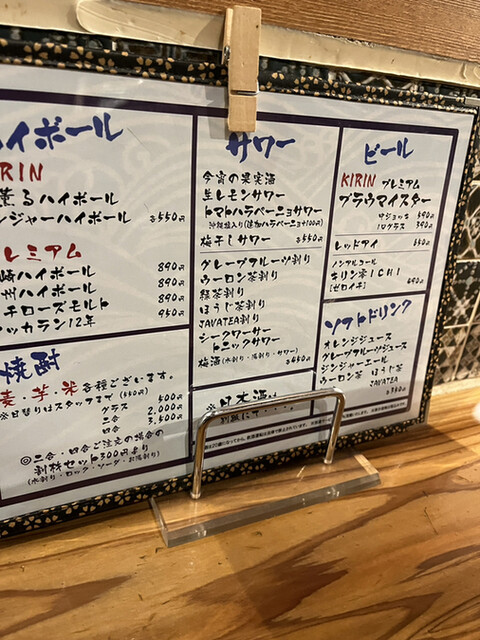 イボール
RIN
薫るハイボール
ンジャーハイボール 各550円
レミアム
崎ハイボール 890円
州ハイボール 890円
チローズモルト 890円
ッカラン12年 950円
焼酎
麦・芋・米各種ございます。
※日替りはスタッフまで(550円)
グラス 500円
二合 2.000円
四合 3.500円
◎二合・四合ご注文の場合の
割材セット300円より
(水割り・ロック・ソーダ・お湯割り)
サワー
今宵の果実酒
生レモンサワー
トマトハラペーニョサワー
(追加ハラペーニョ+100円)
梅干しサワー 各550円
グレープフルーツ割り
ウーロン茶割り
緑茶割り
ほうじ茶割り
JAVATEA割り
シークワーサー
トニックサワー
梅酒(水割り・湯割り・サワー) 各450円
※日本酒は
別紙にて・・・
ビール
KIRIN プレミアム
ブラウマイスター
中ジョッキ 690円
10グラス 390円
レッドアイ 650円
ノンアルコール
キリン零ICHI
[ゼロイチ] 490円
ソフトドリンク
オレンジジュース
グレープフルーツジュース
ジンジャーエール
ウーロン茶 ほうじ茶
JAVATEA